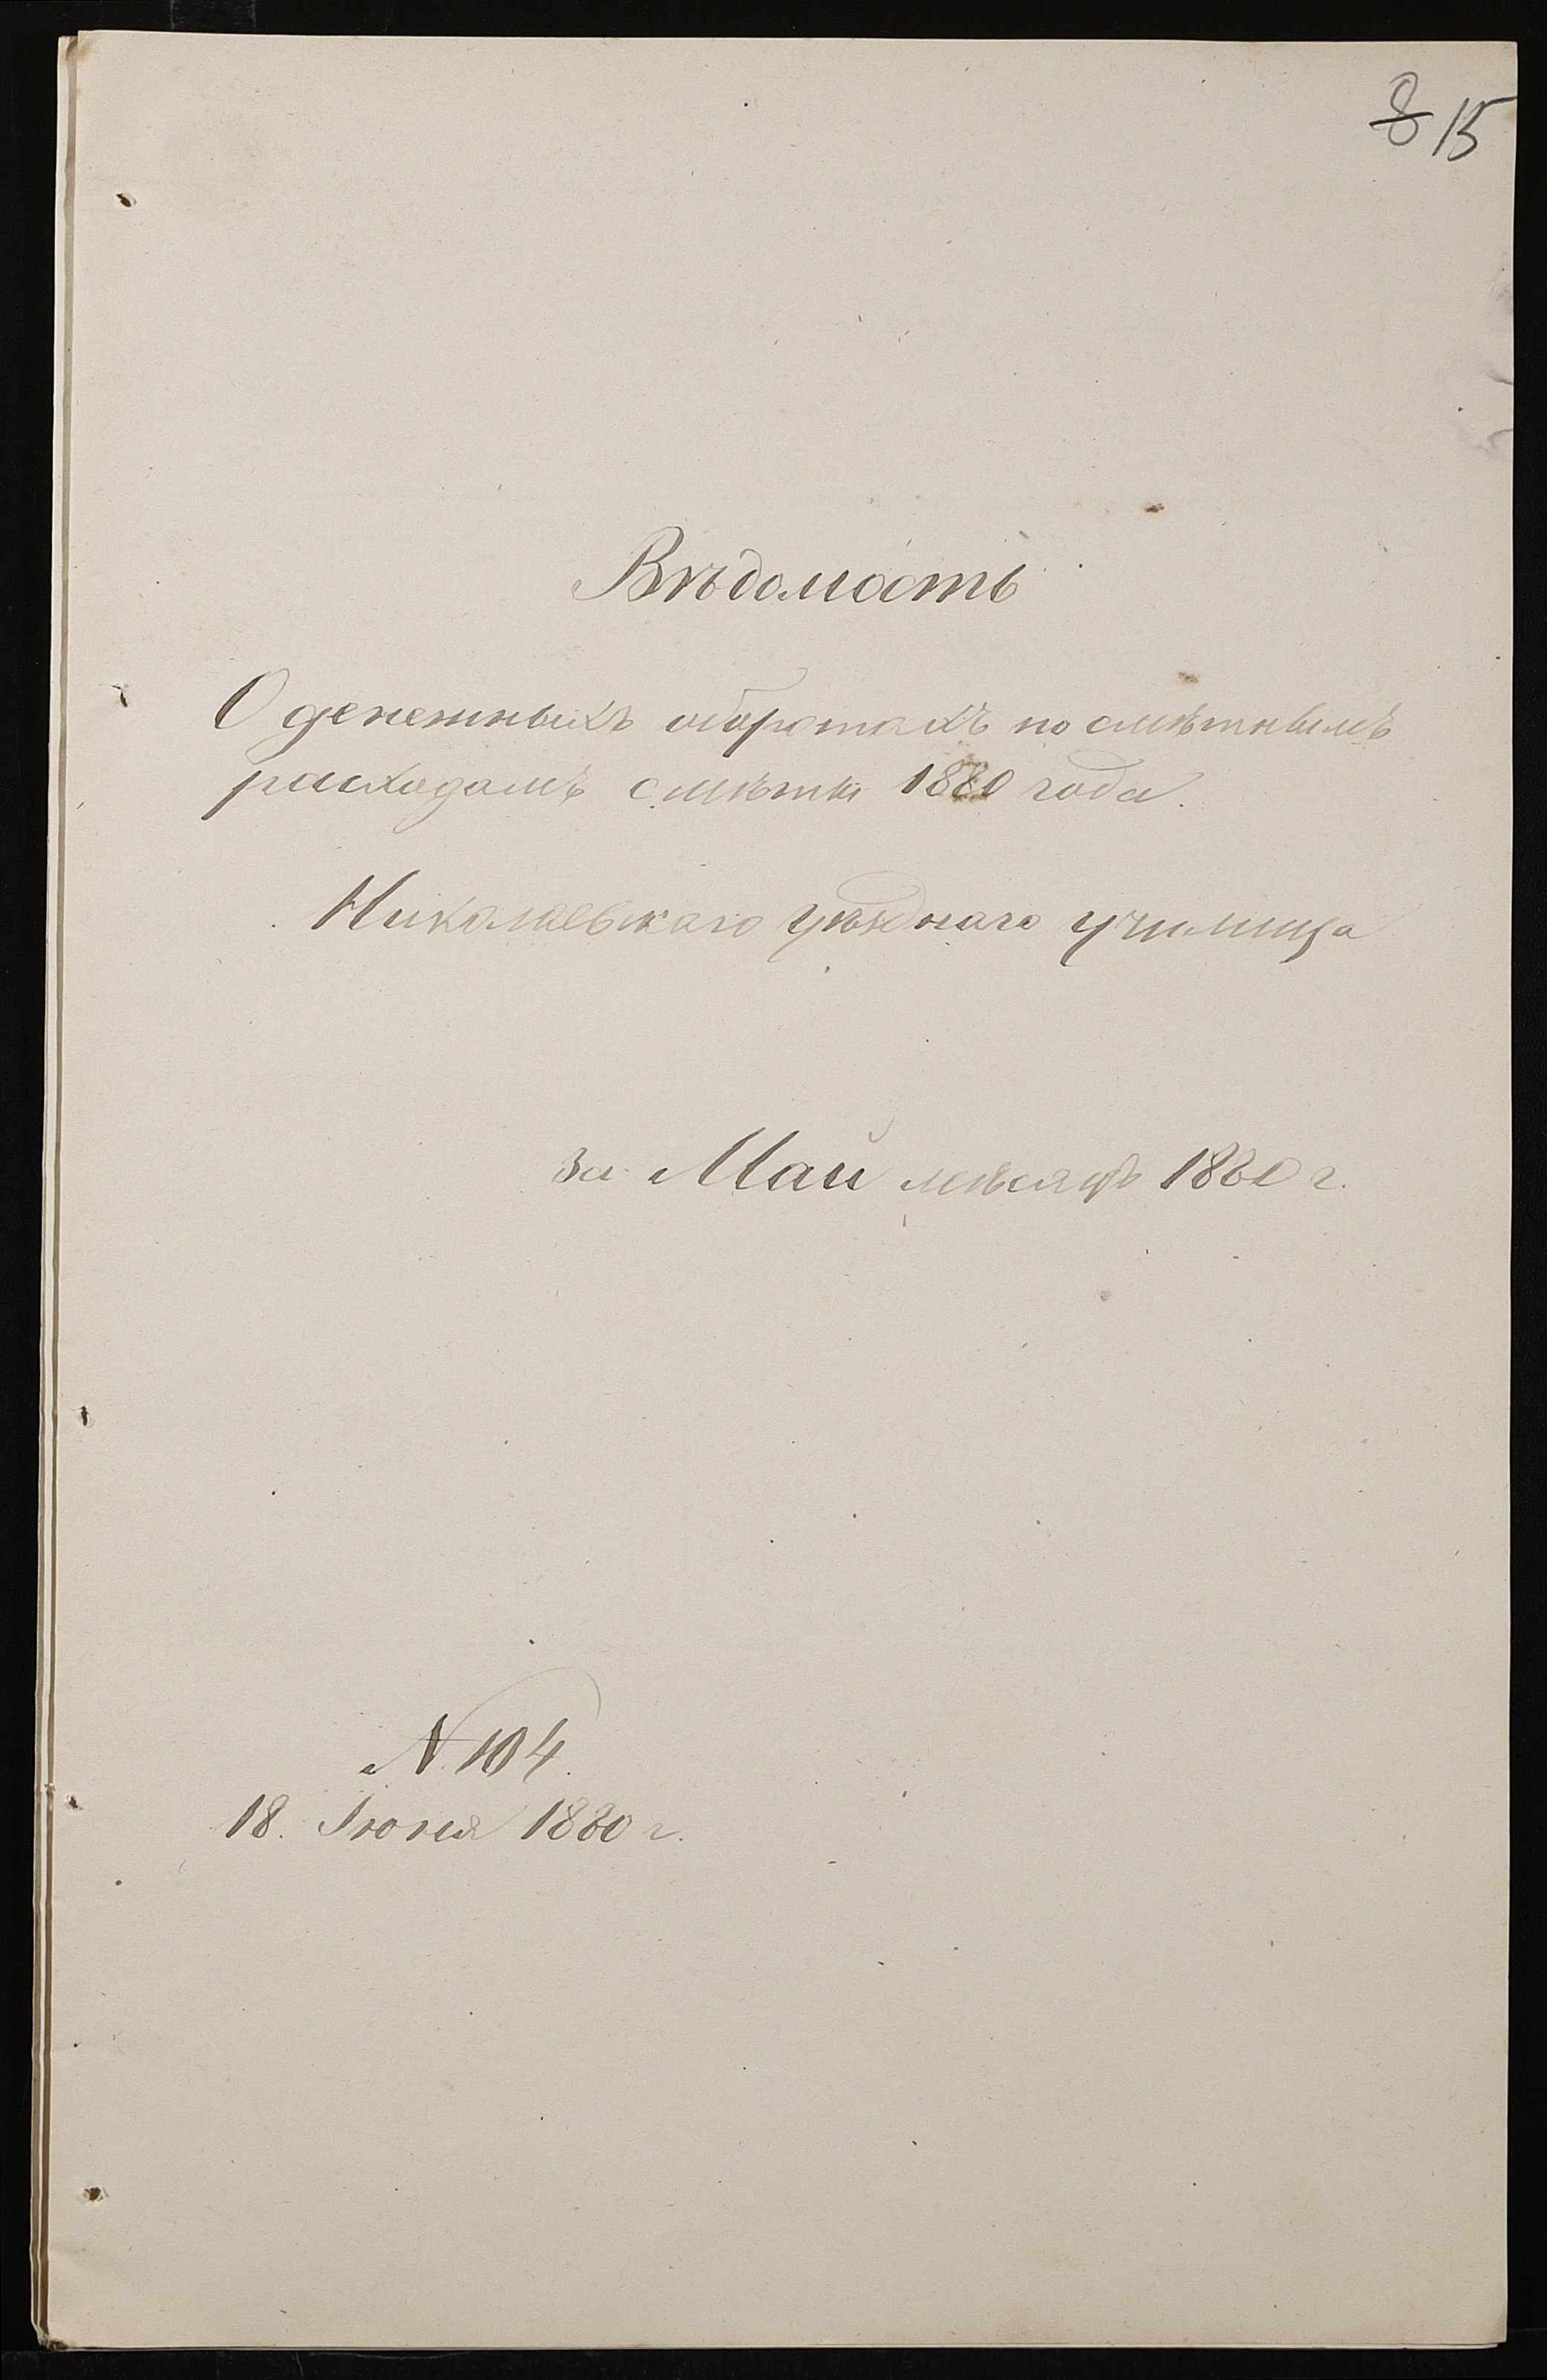 8 15
Вѣдомость
О денежныхъ оборотахъ по смѣтнымъ
расходамъ смѣты 1880 года.
Николаевскаго уѣзднаго училища
за Май мѣсяцъ 1880 г.
N. 104.
18. Іюня 1880 г.